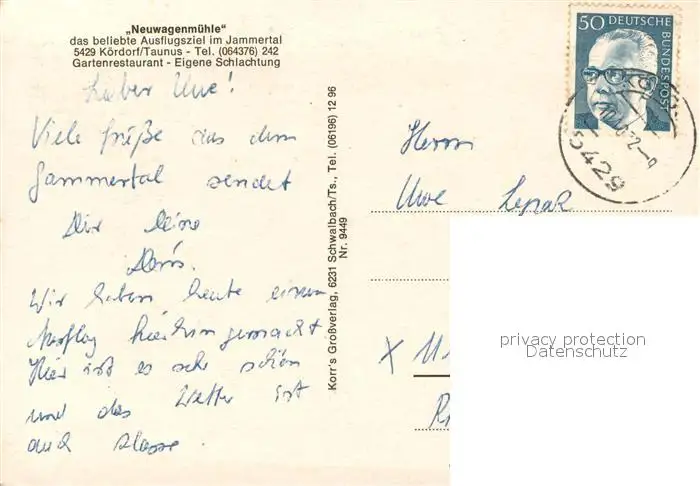 „Neuwagenmühle"
das beliebte Ausflugsziel im Jammertal
5429 Kördorf/Taunus - Tel. (064376) 242
Gartenrestaurant - Eigene Schlachtung
Lieber Uwe!
Viele Grüße aus dem
Jammertal sendet
Dir Deine
Doris.
Wir haben heute einen
Ausflug hierhin gemacht
Hier ist es sehr schön
und das Wetter ist
auch klasse.
Korr's Großverlag, 6231 Schwalbach/Ts., Tel. (06196) 12 96
Nr. 9449
50 DEUTSCHE
BUNDESPOST
5429
Herrn
Uwe
X
privacy protection
Datenschutz